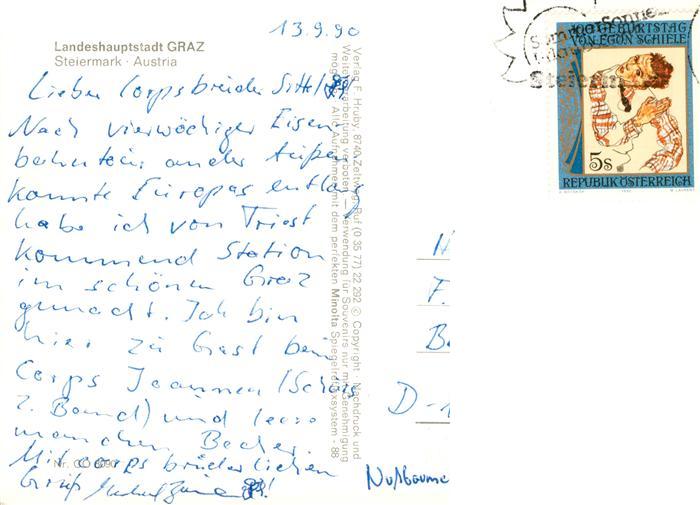 13.9.90
Landeshauptstadt GRAZ
Steiermark · Austria
Lieber Corpsbruder
Nach vierwöchiger Eisen-
bahntour an der Außen-
kante Europas entlang
habe ich von Triest
kommend Station
im schönen Graz
gemacht. Ich bin
hier zu Gast beim
Corps Joannea (Schärz
2. Band) und leere
manchen Becher.
Mit corpsbrüderlichen
Gruß
Nr.
Verlag F. Hruby, 8740 Zeltweg, Ruf (0 35 77) 22 292 © Copyright · Nachdruck und
Weiterverarbeitung verboten — Verwendung für Souvenirs nur mit Genehmigung
Alle Aufnahmen mit dem perfekten Minolta Spiegelreflexsystem - 88
100. GEBURTSTAG
VON EGON SCHIELE
5s
REPUBLIK ÖSTERREICH
Sommer Sonne
Steiermark
H
F.
B
D-
Nußbaume